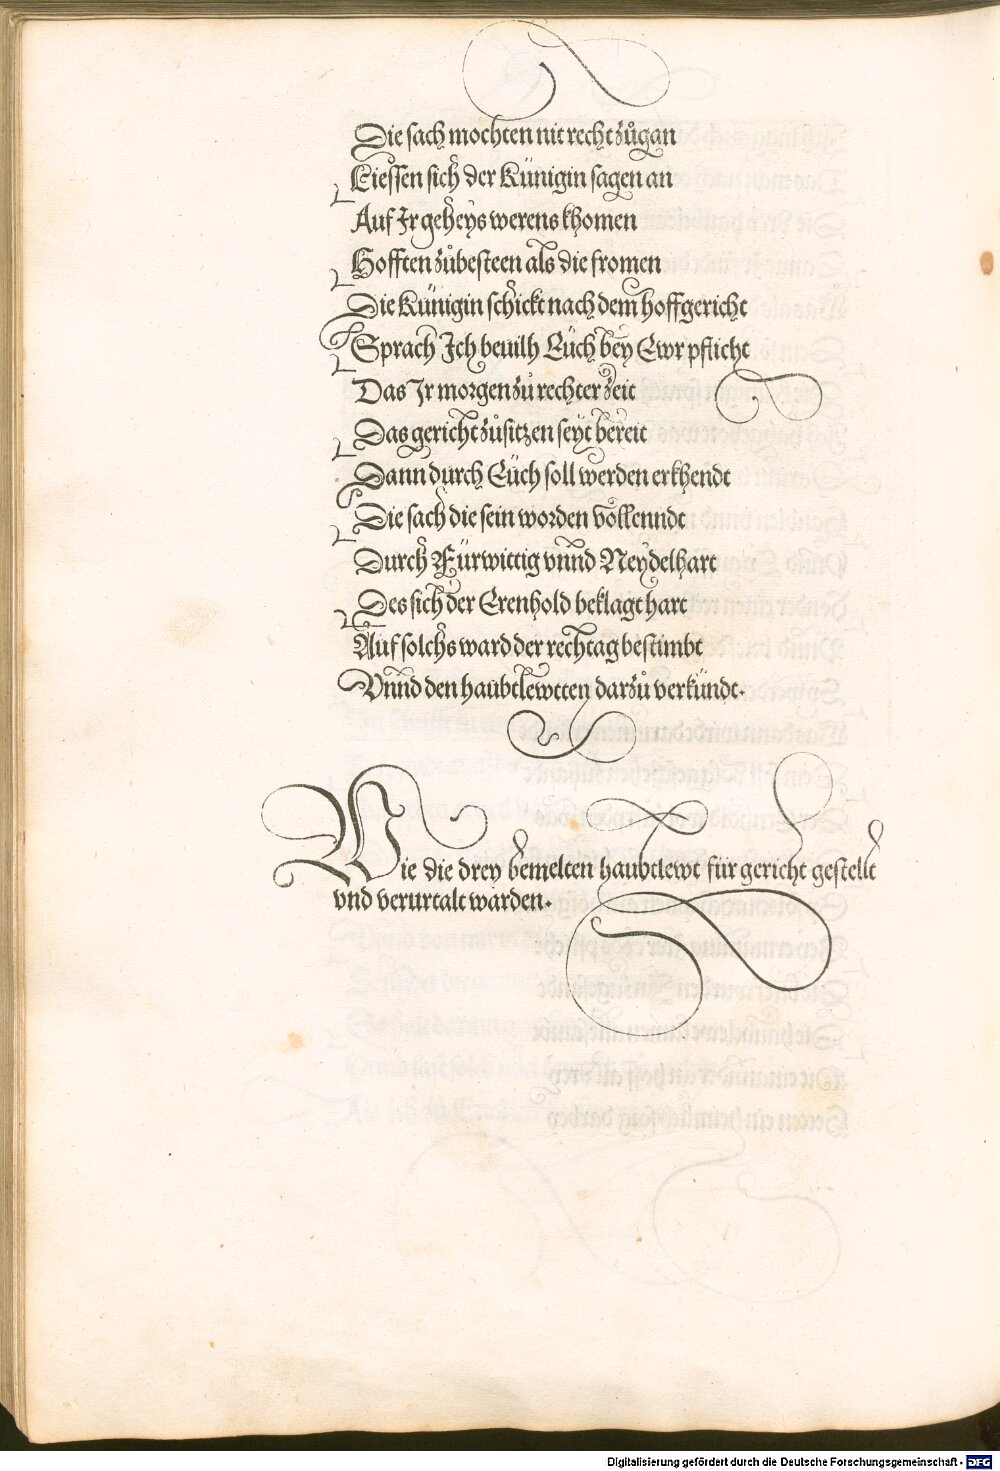 Die sach mochten nit recht zůgan
Liessen sich der Künigin sagen an
Auf Jr geheys werens khomen
Hofften zůbesteen als die fromen
Die Künigin schickt nach dem hoffgericht
Sprach Jch beuilh Eüch bey Ewr pflicht
Das Jr morgen zů rechter zeit
Das gericht zůsitzen seyt bereit
Dann durch Eüch soll werden erkhendt
Die sach die sein worden volkenndt
Durch Fürwittig vnnd Neydelhart
Des sich der Erenhold beklagt hart
Auf solchs ward der rechtag bestimbt
Vnnd den haubtlewtten darzů verkündt.
Wie die drey bemelten haubtlewt für gericht gestellt
vnd verurtalt warden.
Digitalisierung gefördert durch die Deutsche Forschungsgemeinschaft - DFG